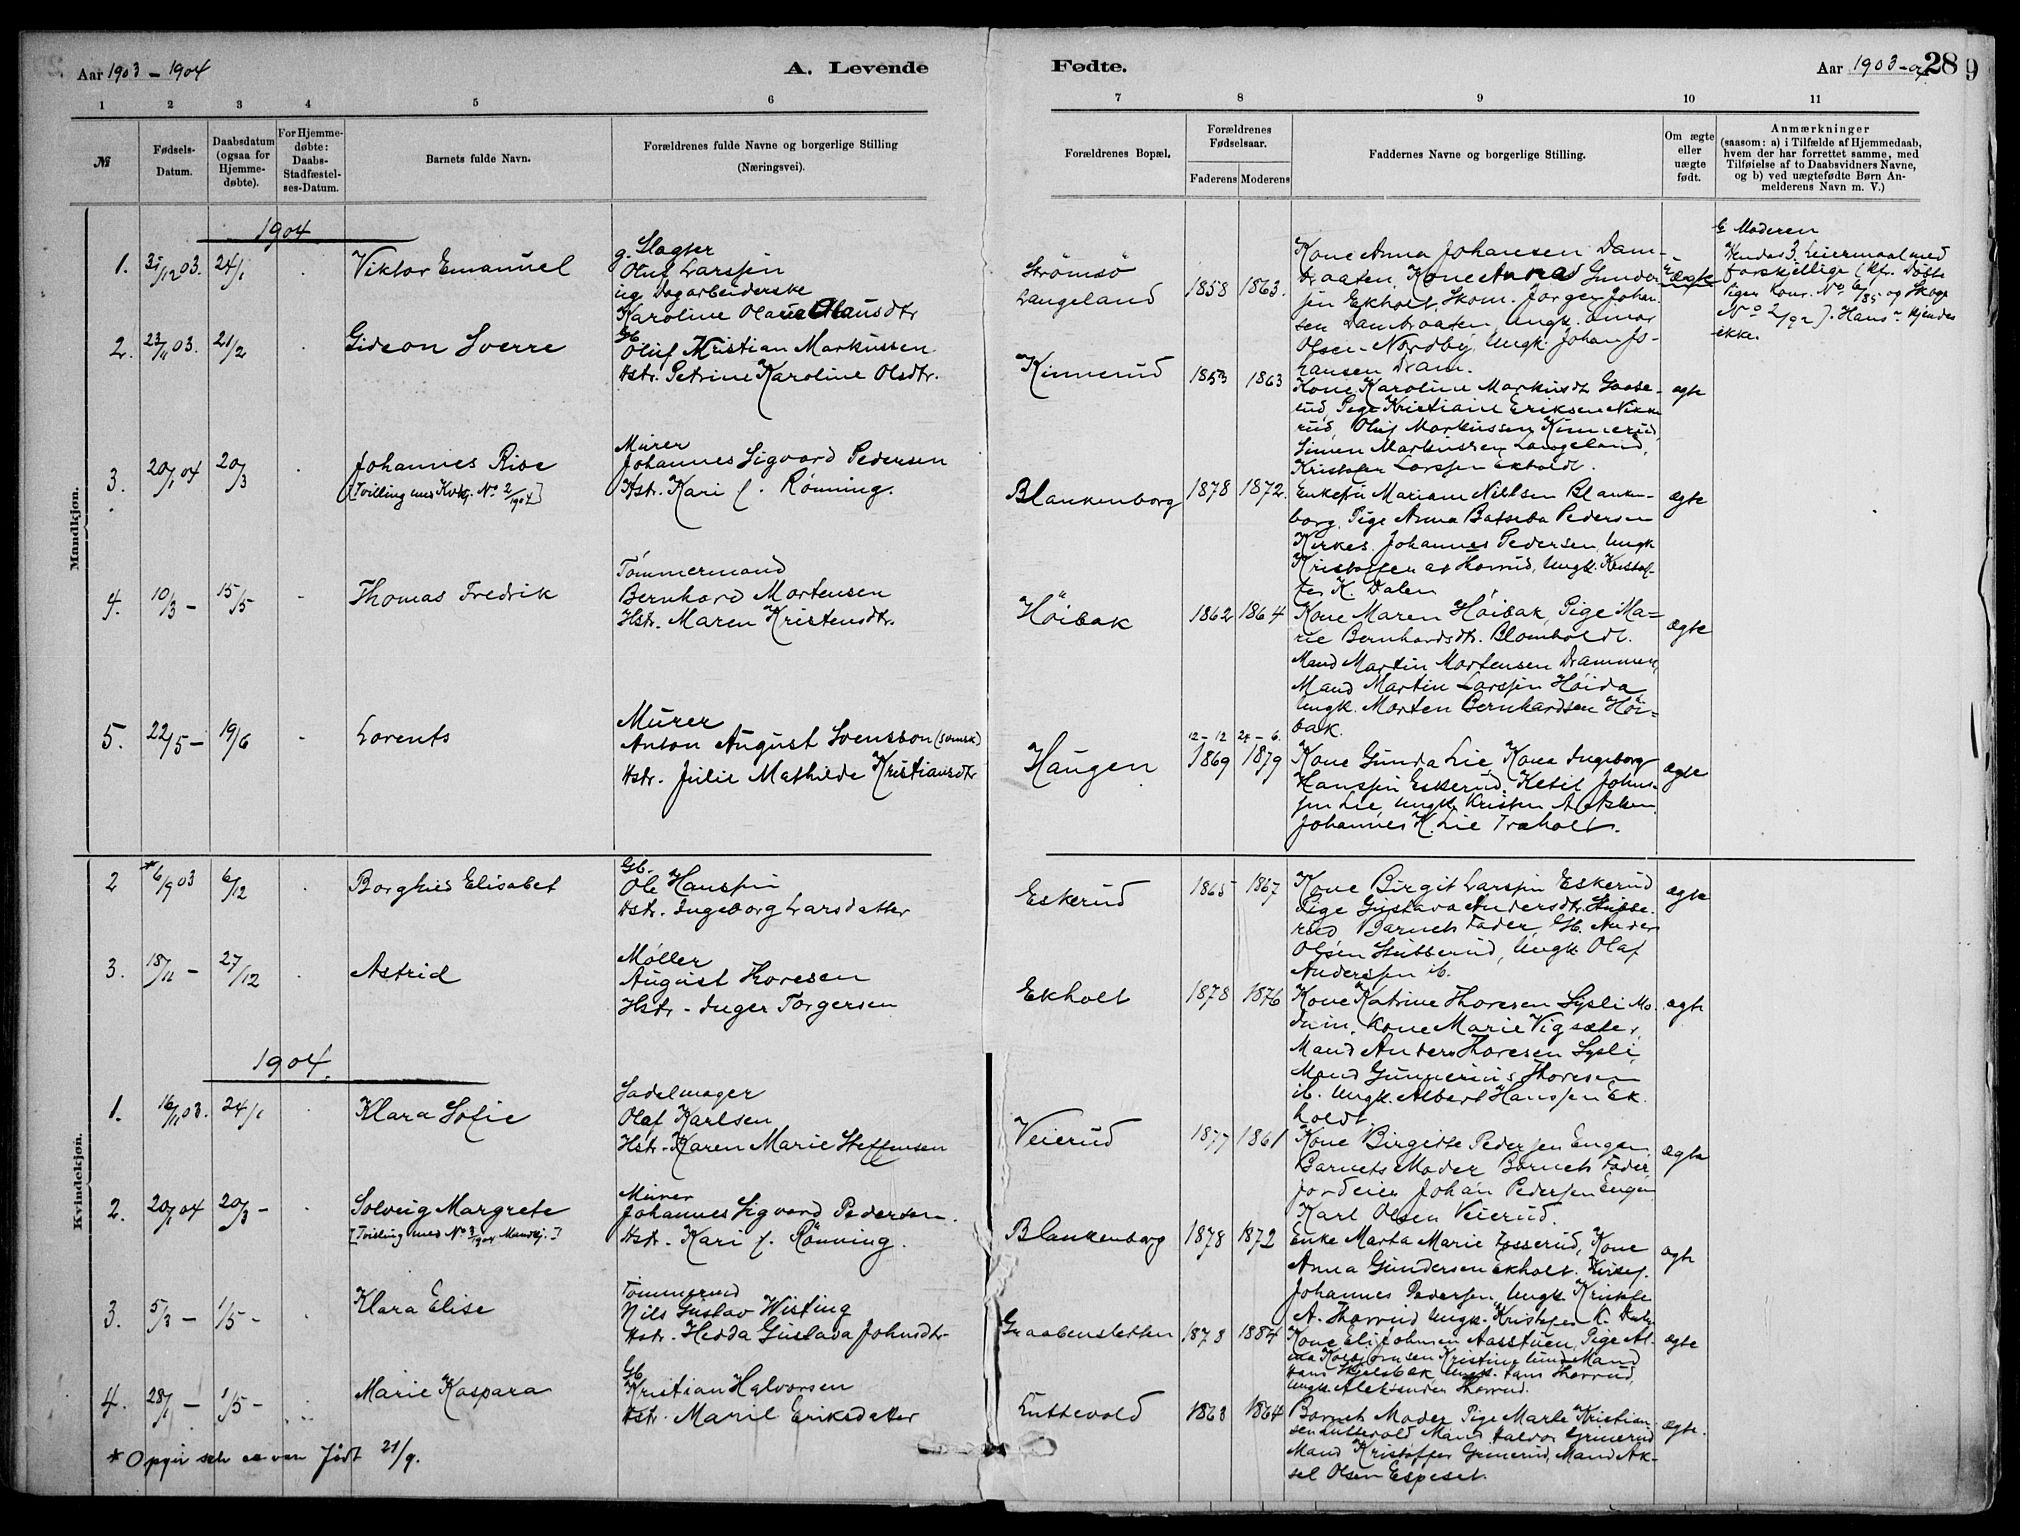 Aar 1903 – 1904
A. Levende
Fødte.
Aar 1903 – 04
289
1 2 3 4 5 6 7 8 9 10 11
№
Fødsels-
Datum.
Daabsdatum
(ogsaa for
Hjemme-
døbte).
For Hjemme-
døbte:
Daabs-
Stadfæstel-
ses-Datum.
Barnets fulde Navn.
Forældrenes fulde Navne og borgerlige Stilling
(Næringsvei).
Forældrenes Bopæl.
Forældrenes
Fødselsaar.
Faderens Moderens
Faddernes Navne og borgerlige Stilling.
Om ægte
eller
uægte
født.
Anmærkninger
(saasom: a) i Tilfælde af Hjemmedaab,
hvem der har forrettet samme, med
Tilføielse af to Daabsvidners Navne,
og b) ved uægtefødte Børn An-
melderens Navn m. V.)
Mandkjøn.
1904
1. 31/12 03. 24/1 Viktor Emanuel
g. Slagter
Oluf Larssen
ug Dagarbeiderske
Karoline Olausdtr
Strømsø
Langeland
1858 1863.
Kone Anna Johansen Dam-
braaten, Kone Anna Gunder-
sen Ekholt, Skom. Jørgen Johan-
sen Dambraaten, Ungk. Einar
Olsen Nordby, Ungk. Johan Jo-
hansen Dram.
Uægte
E Moderen
Hendes 3. Leiermaal med
forskjellige (kfr. Døbte
Piger Konr. No 6/85 og Skoge
No 2/92). Hans kjendes
ikke.
2. 23/11 03. 21/2 Gideon Sverre
Gb.
Oluf Kristian Markussen
Hstr. Petrine Karoline Olsdtr.
Kinnerud
1853 1863
Kone Karoline Markusdt Gaase-
rud, Pige Kristiane Eriksen Nikke
rud, Oluf Markussen Kinnerud,
Simen Markussen Langeland,
Kristoffer Larssen Ekholdt.
ægte
3. 20/1 04 20/3 Johannes Rise
[Tvilling med Kvkj. No 2/1904]
Murer
Johannes Sigvard Pedersen
Hstr. Kari f. Rønning.
Blankenborg
1878 1872.
Enkefru Mariane Nielsen Blanken-
borg, Pige Anna Batseba Pedersen
Kirkes. Johannes Pedersen, Ungk
Kristoffer A. Horrud, Ungk. Kristof-
fer K. Dalen
ægte
4. 10/3 – 15/5 Thomas Fredrik
Tømmermand
Bernhard Mortensen
Hstr. Maren Kristensdtr.
Høibak
1862 1864
Kone Maren Høibak, Pige Ma-
rie Bernhardsdtr. Blomholdt.
Mand Martin Mortensen Drammen,
Mand Martin Larssen Høida
Ungk. Morten Bernhardsen Høi-
bak.
ægte
5. 22/5 – 19/6 Lorents
Murer
Anton August Svensson (svensk)
Hstr. Julie Mathilde Kristiansdtr
Haugen
12–12 24–6.
1869 1879
Kone Gunda Lie, Kone Ingeborg
Hanssen Eskerud, Ketil Johns-
sen Lie, Ungk. Kristen
Johannes H. Lie Træholt.
ægte
Kvindekjøn.
2 * 6/9 03 6/12 Borghild Elisabet
Gb.
Ole Hanssen
Hstr. Ingeborg Larsdatter
Eskerud
1865 1867
Kone Birgit Larssen Eskerud
Pige Gustava Andersdtr. Stubbe-
rud Barnets Fader, Gb. Anders
Olsen Stubberud, Ungk. Olaf
Anderssen ib.
ægte
3. 18/11 – 27/12 Astrid
Møller
August Thoresen
Hstr – Inger Torgersen
Ekholt
1878 1876
Kone Katrine Thoresen Sysli Mo-
dum, Kone Marie Vigsæter,
Mand Anders Thoresen Sysli,
Mand Gunnerius Thoresen
ib. Ungk. Albert Hanssen Ek
holdt.
ægte
1904.
1. 16/11 03. 24/1 Klara Sofie
Sadelmager
Olaf Karlsen
Hstr – Karen Marie Steffensen
Veierud
1877 1861
Kone Birgitte Pedersen Engen
Barnets Moder Barnets Fader
Jordeier Johan Pedersen Engen
Karl Olsen Veierud.
ægte
2. 20/1 04 20/3 – Solveig Margrete
[Tvilling med No 3/1904 Mandkj.]
Murer
Johannes Sigvard Pedersen.
Hstr. Kari f. Rønning.
Blankenborg
1878 1872
Enke Marta Marie Fosserud, Kone
Anna Gundersen Ekholt. Kirkes.
Johannes Pedersen, Ungk. Kristoffe
A. Horrud Ungk. Kristoffer K. Dalen
ægte
3. 5/3 – 1/5 – Klara Elise
Tømmermd
Nils Gustav Wisting
Hstr. Hedda Gustava Johnsdtr
Graabensletten
1878 1884
Kone Eli Johnsen Aasstuen, Pige Al-
Kristine Lund Mand
Hans Skjelsbæk Ungk. Hans Horrud,
Ungk. Aleksander Horrud.
ægte
4. 28/1 – 1/5 – Marie Kaspara
Gb.
Kristian Halvorsen
Hstr. Maril Eriksdatter
Luttevold
1863 1864
Barnets Moder Pige Marte Kristian-
sen Luttevold Mand Halvor Grinerud
Mand Kristoffer Grinerud, Mand Ak-
sel Olsen Espeset.
ægte.
* Opgir selv at være født 21/9.